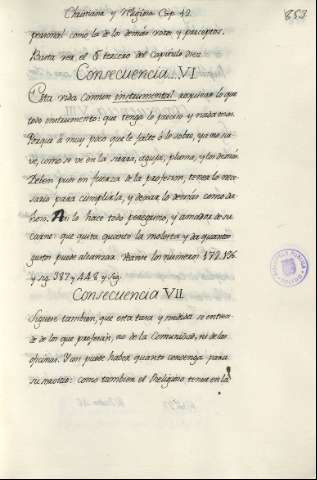 Christiana y Religiosa Cap. 42.
853
personal como la de los demás votos y preceptos.
Basta vea el § tercero del Capítulo diez
Consecuencia VI
Esta vida comun instrumental requiere lo que
todo instrumento: que tenga lo preciso y nada mas.
Porque ó muy poco que le falte ó le sobre, ya no sir-
ve, como se ve en la sierra, aguja, pluma, y los demas.
Deben pues en fuerza de la profesion, tener lo nece-
sario para cumplirla, y dexar lo demás como da-
ñoso. Asi lo hace todo peregrino, y amador de su
carne: que quita quanto la molesta y da quanto
gusto puede alcanzar. Veanse los numeros 172. 176
y sig. 387 y 448 y sig.
Consecuencia VII
Siguese tambien, que esta tasa y medida se entien-
de de los que profesan, no de la Comunidad, ni de las
oficinas. Y asi puede haber quanto convenga para
su servicio: como tambien el Religioso tener en la